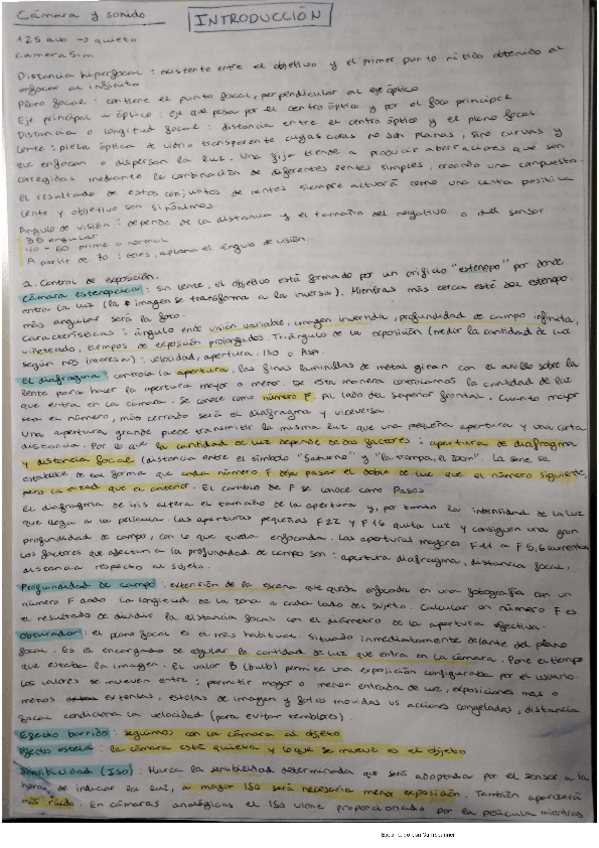 Cámara y sonido INTRODUCCIÓN
125 avo → quieto
camera sim
Distancia hiperfocal : existente entre el objetivo y el primer punto nítido obtenido al
enfocar al infinito
Plano focal : contiene el punto focal, perpendicular al eje óptico
Eje principal u óptico : Eje que pasa por el centro óptico y por el foco principal
Distancia o longitud focal : distancia entre el centro óptico y el plano focal
Lente : pieza óptica de vidrio transparente cuyas caras no son planas, sino curvas y
que enfocan o dispersan la luz. Una fija tiende a producir aberraciones que son
corregidas mediante la combinación de diferentes lentes simples, creando una compuesta.
El resultado de estos conjuntos de lentes siempre actuará como una lente positiva
Lente y objetivo son sinónimos.
Angulo de visión : depende de la distancia y el tamaño del negativo o del sensor
35 angular
40 - 60 prime o normal
A partir de 70 : teles, aplana el ángulo de visión.
2. Control de exposición.
Cámara estenopeica : sin lente, el objetivo está formado por un orificio "estenopo" por donde
entra la luz (la imagen se transforma a la inversa). Mientras más cerca esté del estenopo,
más angular será la foto.
Características : ángulo de visión variable, imagen invertida, profundidad de campo infinita,
viñeteado, tiempos de exposición prolongados. Triángulo de la exposición (medir la cantidad de luz
según nos interesa) : velocidad, apertura, ISO o Asa.
El diafragma : controla la apertura, las finas laminillas de metal giran con el anillo sobre la
lente para hacer la apertura mayor o menor. De esta manera controlamos la cantidad de luz
que entra en la cámara. Se conoce como número F. Al lado del frontal. Cuanto mayor
sea el número, más cerrado será el diafragma y viceversa.
Una apertura grande puede transmitir la misma luz que una pequeña apertura y una corta
distancia. Por lo que la cantidad de luz depende de dos factores : apertura de diafragma
y distancia focal (distancia entre el símbolo "Saturno" y "la trompa, el zoom". La serie se
establece de tal forma que cada número F deja pasar el doble de luz que el número siguiente,
pero la mitad que el anterior. El cambio de F se conoce como Pasos
El diafragma de iris altera el tamaño de la apertura y, por tanto la intensidad de la luz
que llega a la película. Las aperturas pequeñas F22 y F16 quita luz y consiguen una gran
profundidad de campo, con lo que queda enfocada. Las aperturas mayores F4 a F5,6 aumentan
Los factores que afectan a la profundidad de campo son : apertura diafragma, distancia focal,
distancia respecto al sujeto.
Profundidad de campo : extensión de la escena que queda enfocada en una fotografía con un
número F dando la longitud de la zona a cada lado del sujeto. Calcular un número F es
el resultado de dividir la distancia focal con el diámetro de la apertura efectiva.
Obturador : el plano focal es el más habitual. Situado inmediatamente delante del plano
focal. Es el encargado de regular la cantidad de luz que entra en la cámara. Pone el tiempo
que estaba la imagen. El valor B (bulb) permite una exposición configurada por el usuario.
Los valores se mueven entre : permitir mayor o menor entrada de luz, exposiciones más o
menos extensas, estelas de imagen y fotos movidas vs acciones congeladas, distancia
focal condiciona la velocidad (para evitar temblores).
Efecto barrido : seguimos con la cámara al objeto
Efecto estela : la cámara está quieta y lo que se mueve es el objeto
Sensibilidad (ISO) : Marca la sensibilidad determinada que será adoptada por el sensor a la
hora de inducar la luz, a mayor ISO será necesaria menor exposición. También aparecerá
más ruido. En cámaras analógicas el ISO viene proporcionado por la película mientras